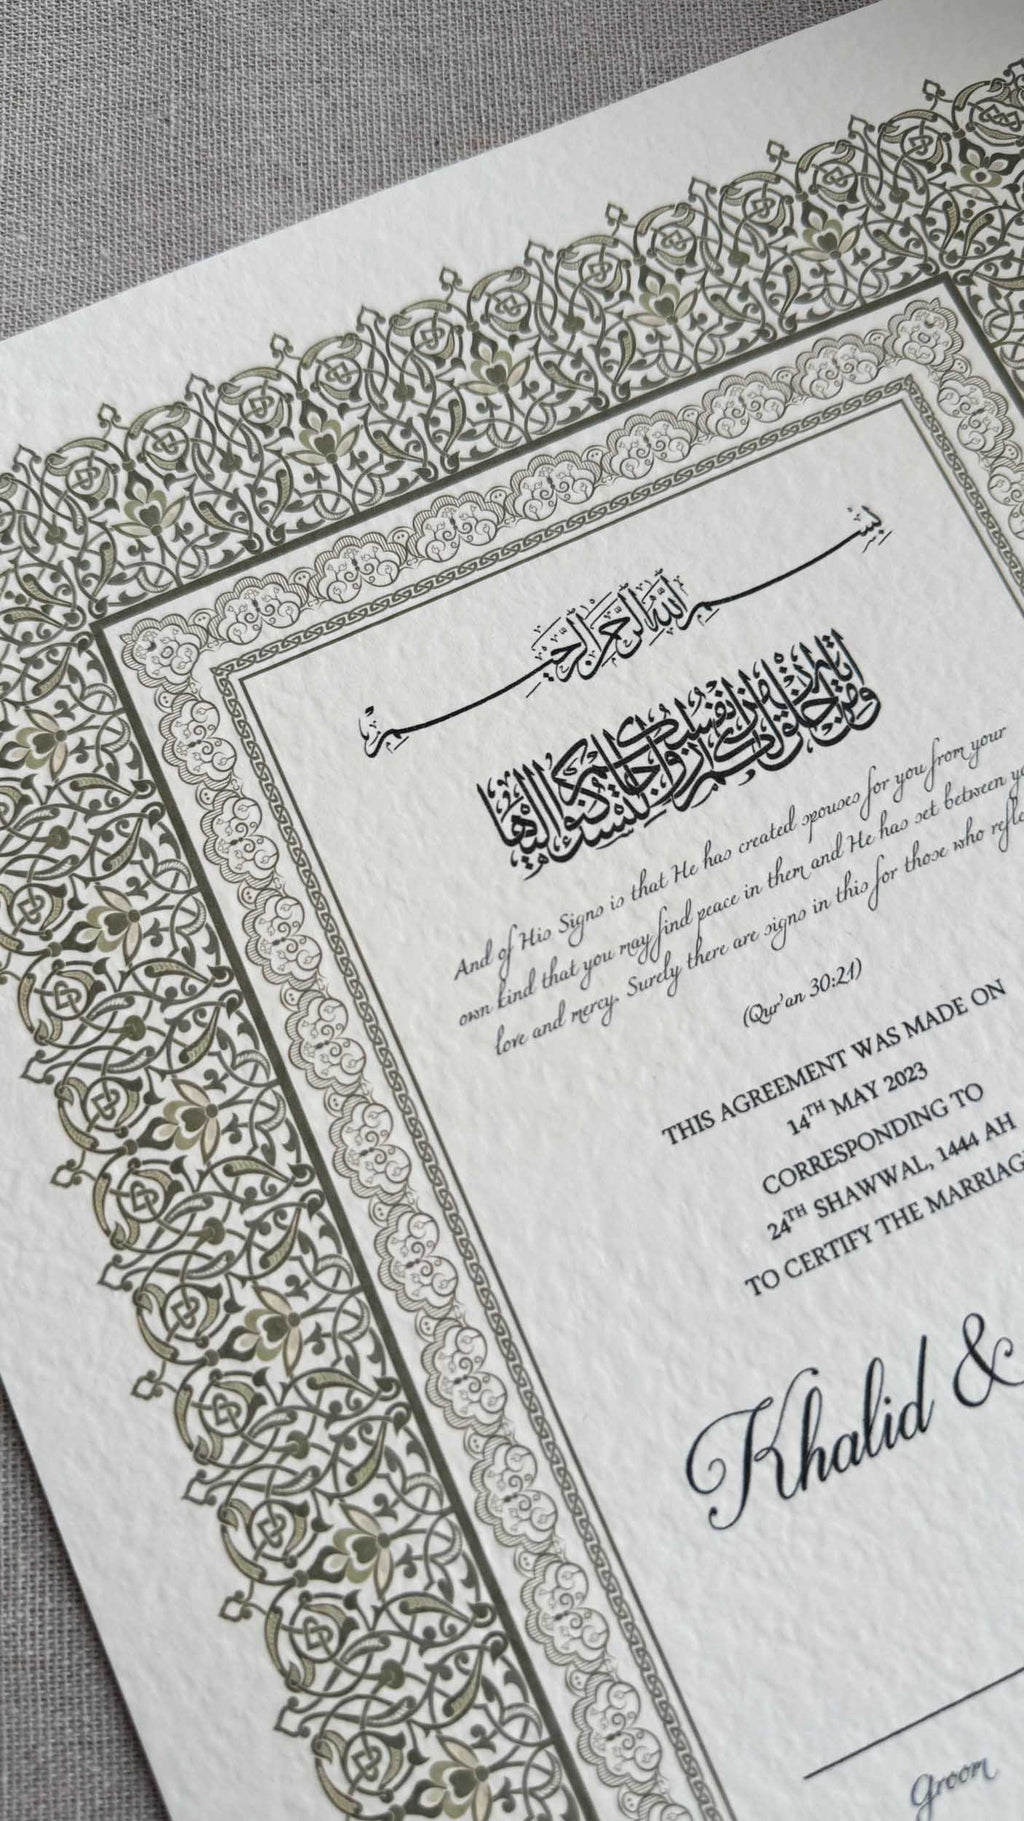 بِسْمِ اللَّهِ الرَّحْمَنِ الرَّحِيمِ
وَمِنْ آيَاتِهِ أَنْ خَلَقَ لَكُم مِّنْ أَنفُسِكُمْ أَزْوَاجًا لِّتَسْكُنُوا إِلَيْهَا
And of His Signs is that He has created spouses for you from your
own kind that you may find peace in them and He has set between
love and mercy. Surely there are signs in this for those who
(Qur'an 30:21)
THIS AGREEMENT WAS MADE ON
14TH MAY 2023
CORRESPONDING TO
24TH SHAWWAL, 1444 AH
TO CERTIFY THE MARRIAGE
Khalid &
Groom